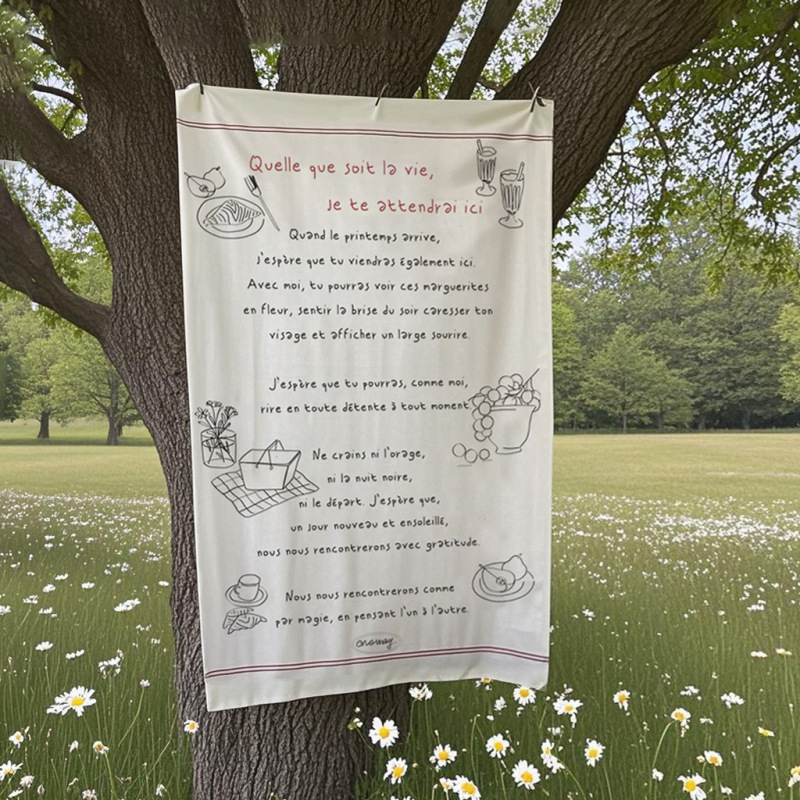 Quelle que soit la vie,
je te attendrai ici
Quand le printemps arrive,
j'espère que tu viendras également ici.
Avec moi, tu pourras voir ces marguerites
en fleur, sentir la brise du soir caresser ton
visage et afficher un large sourire.
J'espère que tu pourras, comme moi,
rire en toute détente à tout moment.
Ne crains ni l'orage,
ni la nuit noire,
ni le départ. J'espère que,
un jour nouveau et ensoleillé,
nous nous rencontrerons avec gratitude.
Nous nous rencontrerons comme
par magie, en pensant l'un à l'autre.